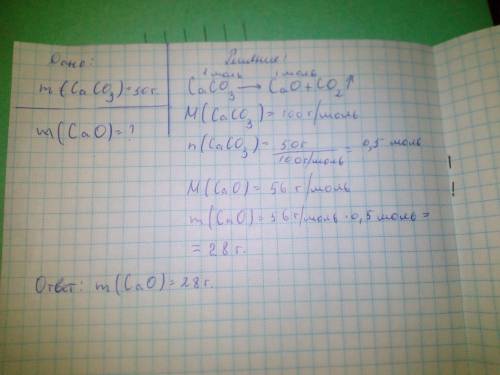 Дано:
m(CaCO3)=50г.
m(CaO)=?
Решение:
1 моль 1 моль
CaCO3 → CaO+CO2↑
M(CaCO3)=100г/моль
n(CaCO3)=50г/100г/моль=0,5 моль
M(CaO)=56 г/моль
m(CaO)=56 г/моль·0,5 моль=
=28 г.
Ответ: m(CaO)=28г.